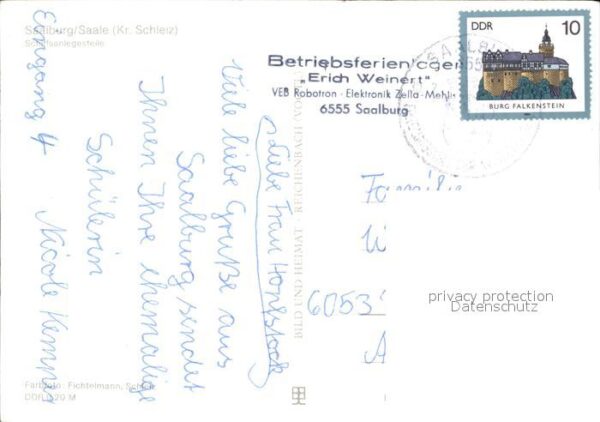 Saalburg/Saale (Kr. Schleiz)
Schiffsanlegestelle
Liebe Frau Honbstock
Viele liebe Grüße aus
Saalburg sendet
Ihnen Ihre ehemalige
Schülerin
Nicole Kemner
Eingang 4
Betriebsferienlager
„Erich Weinert"
VEB Robotron - Elektronik Zella-Mehlis
6555 Saalburg
DDR 10
BURG FALKENSTEIN
Familie
6053
privacy protection
Datenschutz
BILD UND HEIMAT · REICHENBACH
Farbfoto: Fichtelmann,